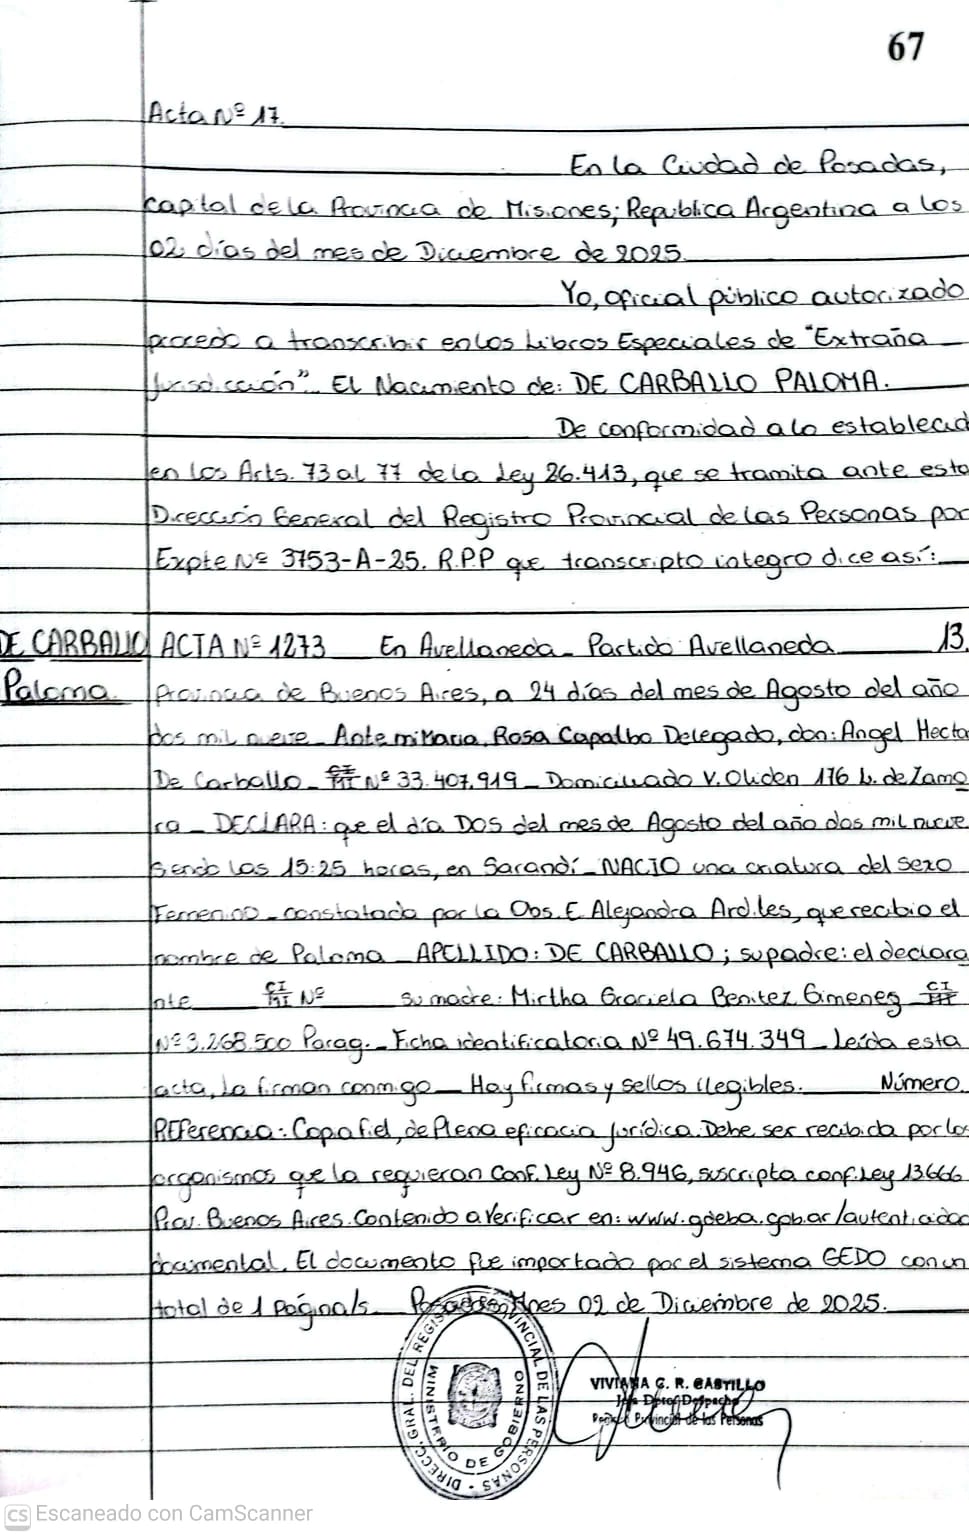 67
Acta Nº 17.
En la Ciudad de Posadas,
capital de la Provincia de Misiones; Republica Argentina a los
02 días del mes de Diciembre de 2025.
Yo, oficial público autorizado
procedo a transcribir en los Libros Especiales de "Extraña
Jurisdicción". El Nacimiento de: DE CARBALLO PALOMA.
De conformidad a lo establecid
en los Arts. 73 al 77 de la Ley 26.413, que se tramita ante esta
Dirección General del Registro Provincial de las Personas por
Expte Nº 3753-A-25. R.P.P que transcripto integro dice así:
DE CARBALLO ACTA Nº 1273 En Avellaneda - Partido Avellaneda 13.
Paloma. Provincia de Buenos Aires, a 24 días del mes de Agosto del año
dos mil nueve - Ante mi Maria, Rosa Capalbo Delegado, don: Angel Hecto
De Carballo - CI MI Nº 33.407.919 - Domiciliado V. Oliden 176 L. de Zamo
ra - DECLARA: que el día DOS del mes de Agosto del año dos mil nueve
siendo las 15:25 horas, en Sarandí - NACIO una criatura del sexo
Femenino - constatada por la Obs. E. Alejandra Ardiles, que recibio el
nombre de Paloma - APELLIDO: DE CARBALLO; su padre: el declara
nte CI MI Nº su madre: Mirtha Graciela Benitez Gimenez CI MI
Nº 3.268.500 Parag. - Ficha identificatoria Nº 49.674.349 - Leída esta
acta, la firman conmigo - Hay firmas y sellos ilegibles. Número
Referencia: Copia fiel, de Plena eficacia jurídica. Debe ser recibida por los
organismos que la requieran Conf. Ley Nº 8.946, suscripta conf. Ley 13666
Prov. Buenos Aires. Contenido a Verificar en: www.gdeba.gob.ar/autenticidad
documental. El documento fue importado por el sistema GEDO con un
total de 1 Página/s. Posadas, Mnes 02 de Diciembre de 2025.
DIRECC. GRAL. DEL REGISTRO PROVINCIAL DE LAS PERSONAS
MINISTERIO DE GOBIERNO
VIVIANA G. R. CASTILLO
Jefe Dpto. Despacho
Registro Provincial de las Personas
CS Escaneado con CamScanner